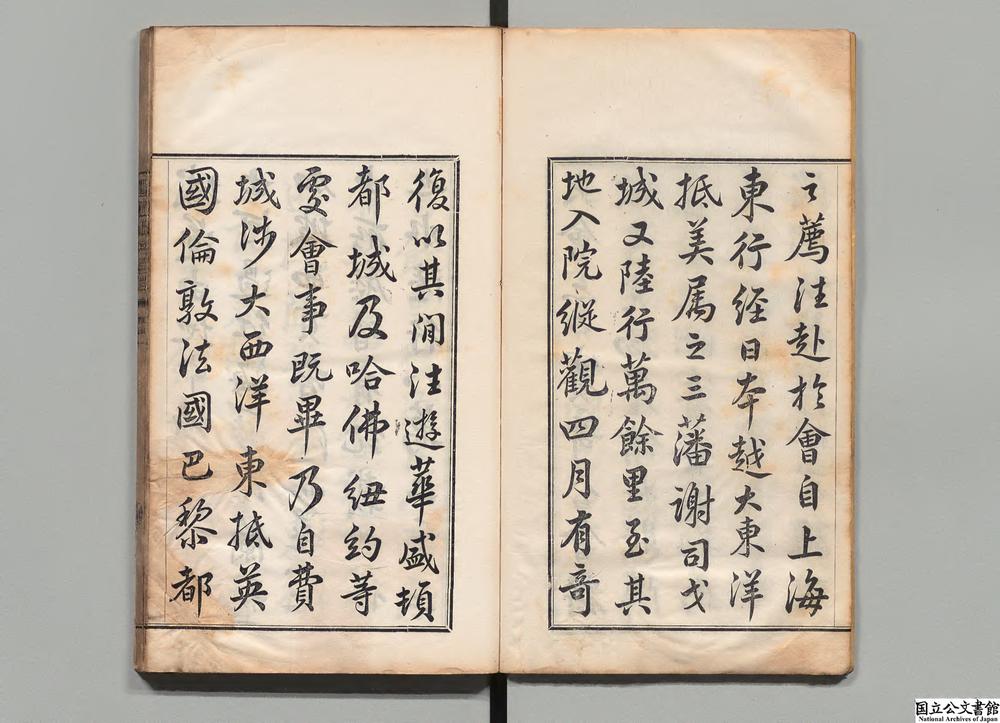 之薦注赴於會自上海
東行經日本越大東洋
抵美屬之三藩謝司戈
城又陸行萬餘里至其
地入院縱觀四月有奇
復以其間往遊華盛頓
都城及哈佛紐約等
處會事既畢乃自費
城涉大西洋東抵英
國倫敦法國巴黎都
国立公文書館
National Archives of Japan